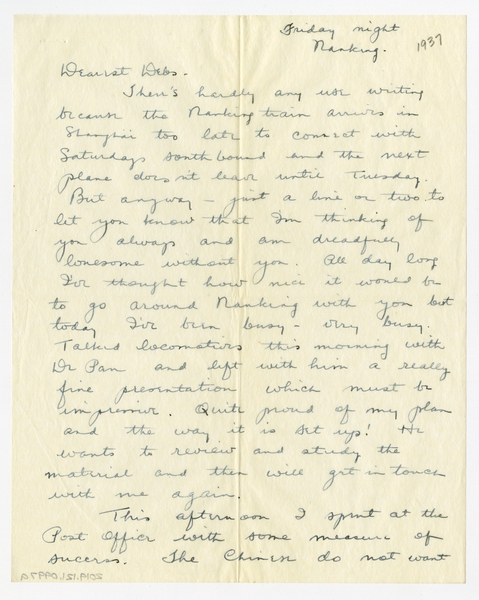 Friday night
Nanking.
1937
Dearest Debs.
There's hardly any use writing
because the Nanking train arrives in
Shanghai too late to connect with
Saturdays southbound and the next
plane doesn't leave until Tuesday.
But anyway - just a line or two to
let you know that I'm thinking of
you always and am dreadfully
lonesome without you. All day long
I've thought how nice it would be
to go around Nanking with you but
today I've been busy - very busy.
Talked locomotives this morning with
Dr Pan and left with him a really
fine presentation which must be
impressive. Quite proud of my plan
and the way it is set up! He
wants to review and study the
material and then will get in touch
with me again.
This afternoon I spent at the
Post Office with some measure of
success. The Chinese do not want
2019.121.0997.7a